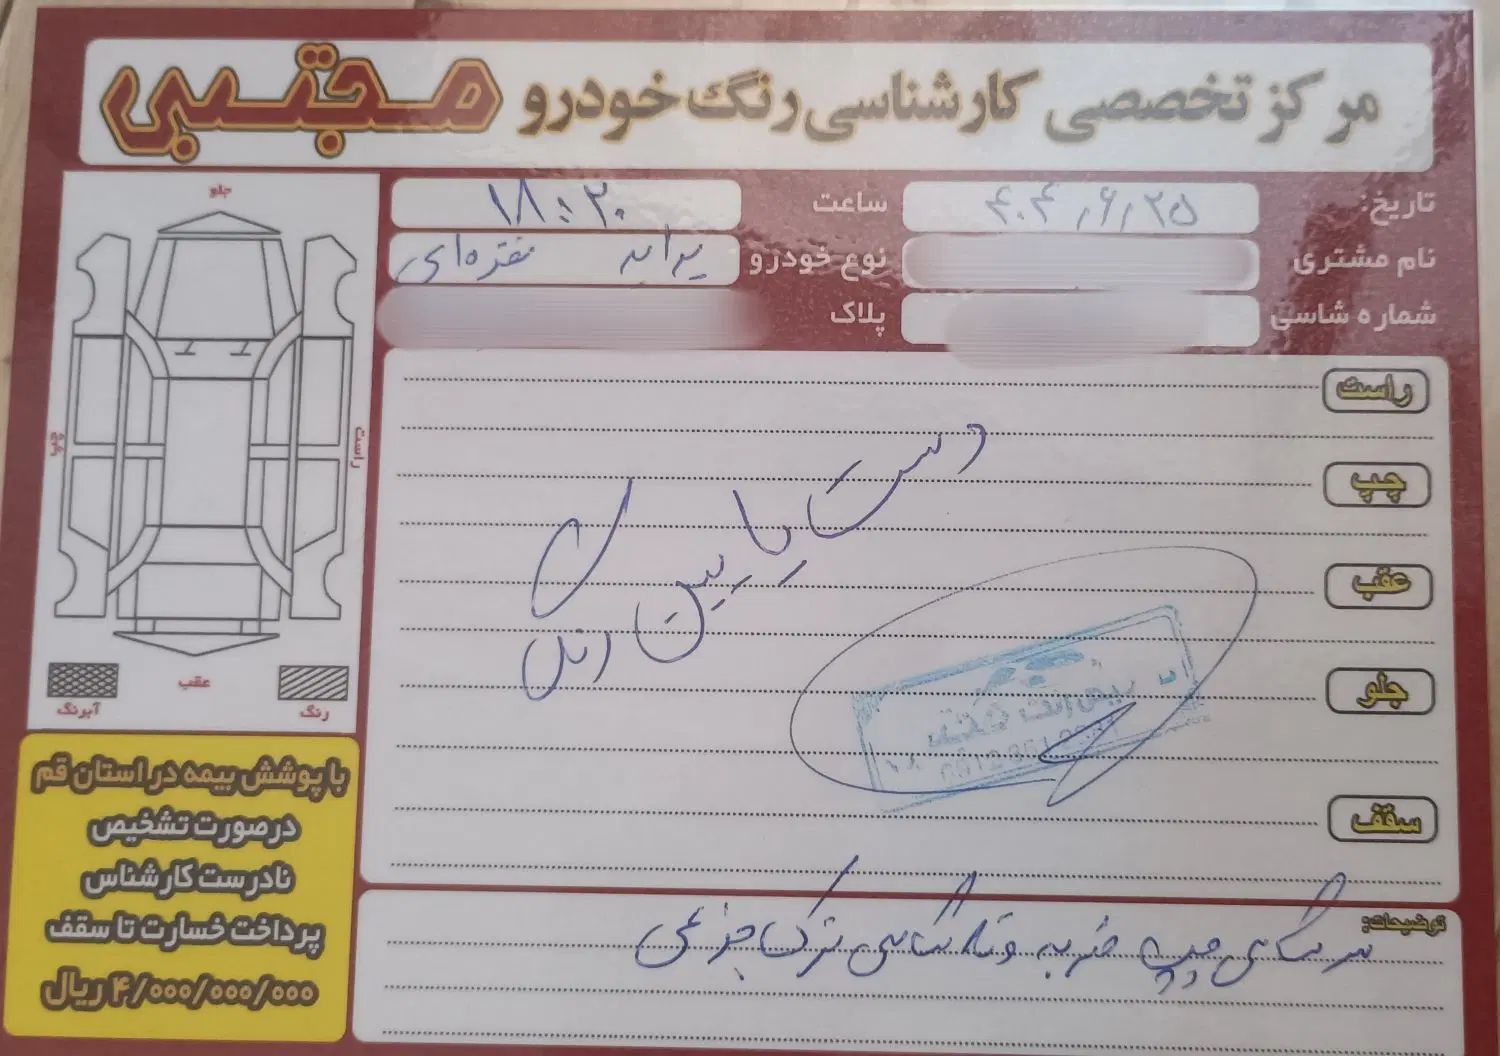 مرکز تخصصی کارشناسی رنگ خودرو مجتبی
تاریخ: ۴۰۴,۶,۲۵
ساعت ۱۸:۲۰
نام مشتری
نوع خودرو پراید نقره‌ای
شماره شاسی
پلاک
جلو
چپ
راست
عقب
رنگ
آبرنگ
راست
چپ
عقب
جلو
سقف
دست پایین رنگ
توضیحات:
سرشاسی چپ ضربه و تا شاسی ترک جزئی
با پوشش بیمه در استان قم
در صورت تشخیص
نادرست کارشناس
پرداخت خسارت تا سقف
۴/۰۰۰/۰۰۰/۰۰۰ ریال